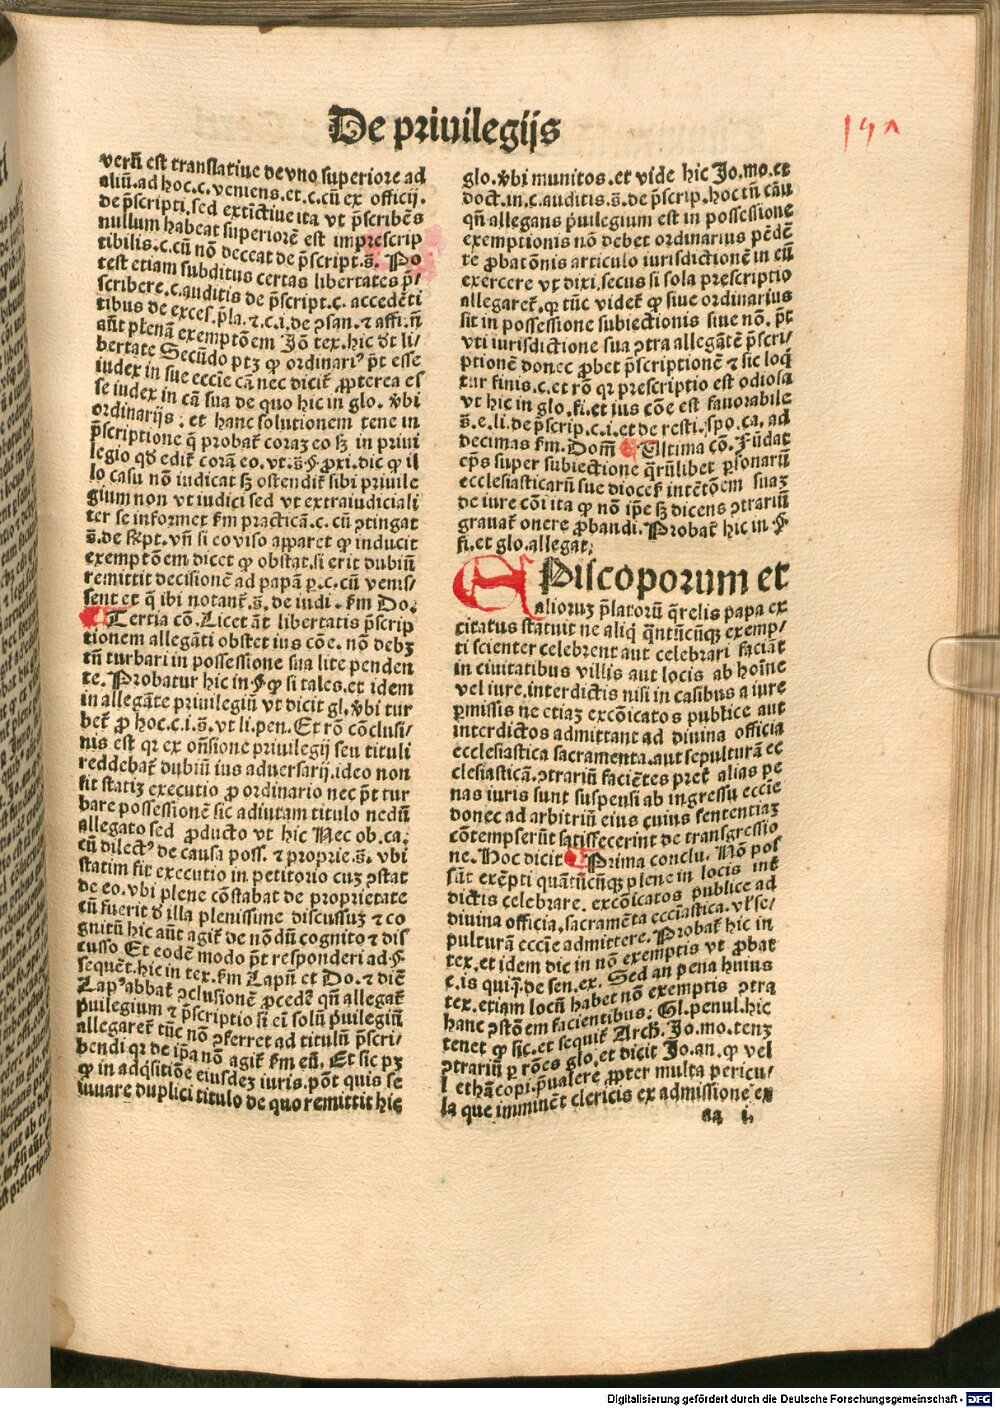 De priuilegijs
verū est translatiue de vno superiore ad
aliū. ad hoc. c. veniens. et. c. cū ex officij.
de p̄scripti. sed extīctiue ita vt p̄scribēs
nullum habeat superiorē est imprescrip
tibilis. c. cū nō deceat de p̄script. s̄. Po
test etiam subditus certas libertates p̄/
scribere. c. auditis de p̄script. c. accedēti
tibus de exces. p̄la. ⁊ c. i. de ꝯsan. ⁊ affi. n̄
aūt plenā exemptōem Jō tex. hic dt̄ li/
bertate Secūdo ptꝫ ꝙ ordinariꝰ p̄t esse
iudex in sue eccīe cā nec dicit̄ ꝓpterea es
se iudex in cā sua de quo hic in glo. v̄bi
ordinarijs. et hanc solutionem tene in
p̄scriptione q̄ probat̄ coraꝫ eo sꝫ in priui
legio qd̄ edit̄ corā eo. vt. s̄. § ꝓxi. dic ꝙ il
lo casu nō iudicat sꝫ ostendit̄ sibi priuile
gium non vt iudici sed vt extraiudiciali
ter se informet fm practicā. c. cū ꝯtingat
s̄. de rescpt. vn̄ si eo viso apparet ꝙ inducit
exemptōem dicet ꝙ obstat. si erit dubiū
remittit decisionē ad papā ꝑ. c. cū venis/
sent et q̄ ibi notant̄. s̄. de iudi. fm Do.
Tertia cō. Licet āt libertatis p̄scrip
tionem allegāti obstet ius cōe. nō debꝫ
tn̄ turbari in possessione sua lite penden
te. Probatur hic in § ꝙ si tales. et idem
in allegāte priuilegiū vt dicit gl. v̄bi tur
bet̄ ꝓ hoc. c. i. s̄. vt li. pen. Et rō cōclusi/
nis est qꝛ ex oñsione priuilegij seu tituli
reddebat̄ dubiū ius aduersarij. ideo non
fit statiꝫ executio ꝓ ordinario nec p̄t tur
bare possessionē sic adiutam titulo nedū
allegato sed ꝓducto vt hic Nec ob. ca.
cū dilectꝰ de causa poss. ⁊ proprie. s̄. vbi
statim fit executio in petitorio cuꝫ ꝯstat
de eo. vbi plene cōstabat de proprietate
cū fuerit d̄ illa plenissime discussuꝫ ⁊ co
gnitū hic aūt agit̄ de nōdū cognito ⁊ dis
cusso Et eodē modo p̄t responderi ad §
sequēt. hic in tex. fm Lapū et Do. ⁊ diē
Lapꝰ abbat̄ ꝯclusionē ꝓcedeꝰ qn̄ allegat̄
p̄uilegium ⁊ p̄scriptio si eī solū p̄uilegiū
allegaret̄ tūc nō ꝯferret ad titulū p̄scri/
bendi qꝛ de ip̄a nō agit̄ fm eū. Et sic pꝫ
ꝙ in adq̄sitiōe eiusdeꝫ iuris. pōt quis se
iuuare duplici titulo de quo remittit hic
glo. v̄bi munitos. et vide hic Jo. mo. et
doct. in. c. auditis. s̄. de p̄scrip. hoc tn̄ cāu
qn̄ allegans p̄uilegium est in possessione
exemptionis nō debet ordinarius pēdē
re ꝓbatōnis articulo iurisdictionē in eū
exercere vt dixi. secus si sola prescriptio
allegaret̄. ꝙ tūc videt̄ ꝙ siue ordinarius
sit in possessione subiectionis siue nō. p̄t
vti iurisdictione sua ꝯtra allegātē p̄scri/
ptionē donec ꝓbet p̄scriptionē ⁊ sic loq̄
tur finis. c. et rō qꝛ prescriptio est odiosa
vt hic in glo. fi. et ius cōe est fauorabile
s̄. e. li. de p̄scrip. c. i. et de resti. spo. ca. ad
decimas fm. Dom̄ Ultima cō. Fūdat
ep̄s super subiectione qrūlibet ꝑsonarū
ecclesiasticarū sue dioceſ intētōem suaꝫ
de iure cōi ita ꝙ nō ip̄e sꝫ dicens ꝯtrariū
grauat̄ onere ꝓbandi. Probat̄ hic in §
fi. et glo. allegat.
EPiscoporum et
aliorum p̄latorū q̄relis papa ex
citatus statuit ne aliq̄ q̄ntūcūqꝫ exemp/
ti scienter celebrent aut celebrari faciāt
in ciuitatibus villis aut locis ab hoīne
vel iure. interdictis nisi in casibus a iure
ꝑmissis ne etiaꝫ excōicatos publice aut
interdictos admittant ad diuina officia
ecclesiastica sacramenta. aut sepulturā ec
clesiasticā. ꝯtrariū faciētes pret̄ alias pe
nas iuris sunt suspensi ab ingressu eccīe
donec ad arbitriū eius cuius sententiaꝫ
cōtempserūt satisfecerint de transgressio
ne. Hoc dicit Prima conclu. Nō pos
sūt exēpti quātūcūqꝫ plene in locis int̄
dictis celebrare. excōicatos publice ad
diuina officia. sacramēta ecciastica. vl̄ se/
pulturā eccīe admittere. Probat̄ hic in
tex. et idem dic in nō exemptis vt ꝓbat̄
c. is qui. §. de sen. ex. Sed an pena huius
tex. etiam locū habet nō exemptis ꝯtra
hanc ꝯstōem facientibus. Gl. penul. hic
tenet ꝙ sic. et sequit̄ Arch. Jo. mo. tenꝫ
ꝯtrariū ꝑ rōes glo. et dicit Jo. an. ꝙ vel
l ethā eopi. p̄ualere ꝓpter multa pericu/
la que iminēt clericis ex admissione ex
aa i.